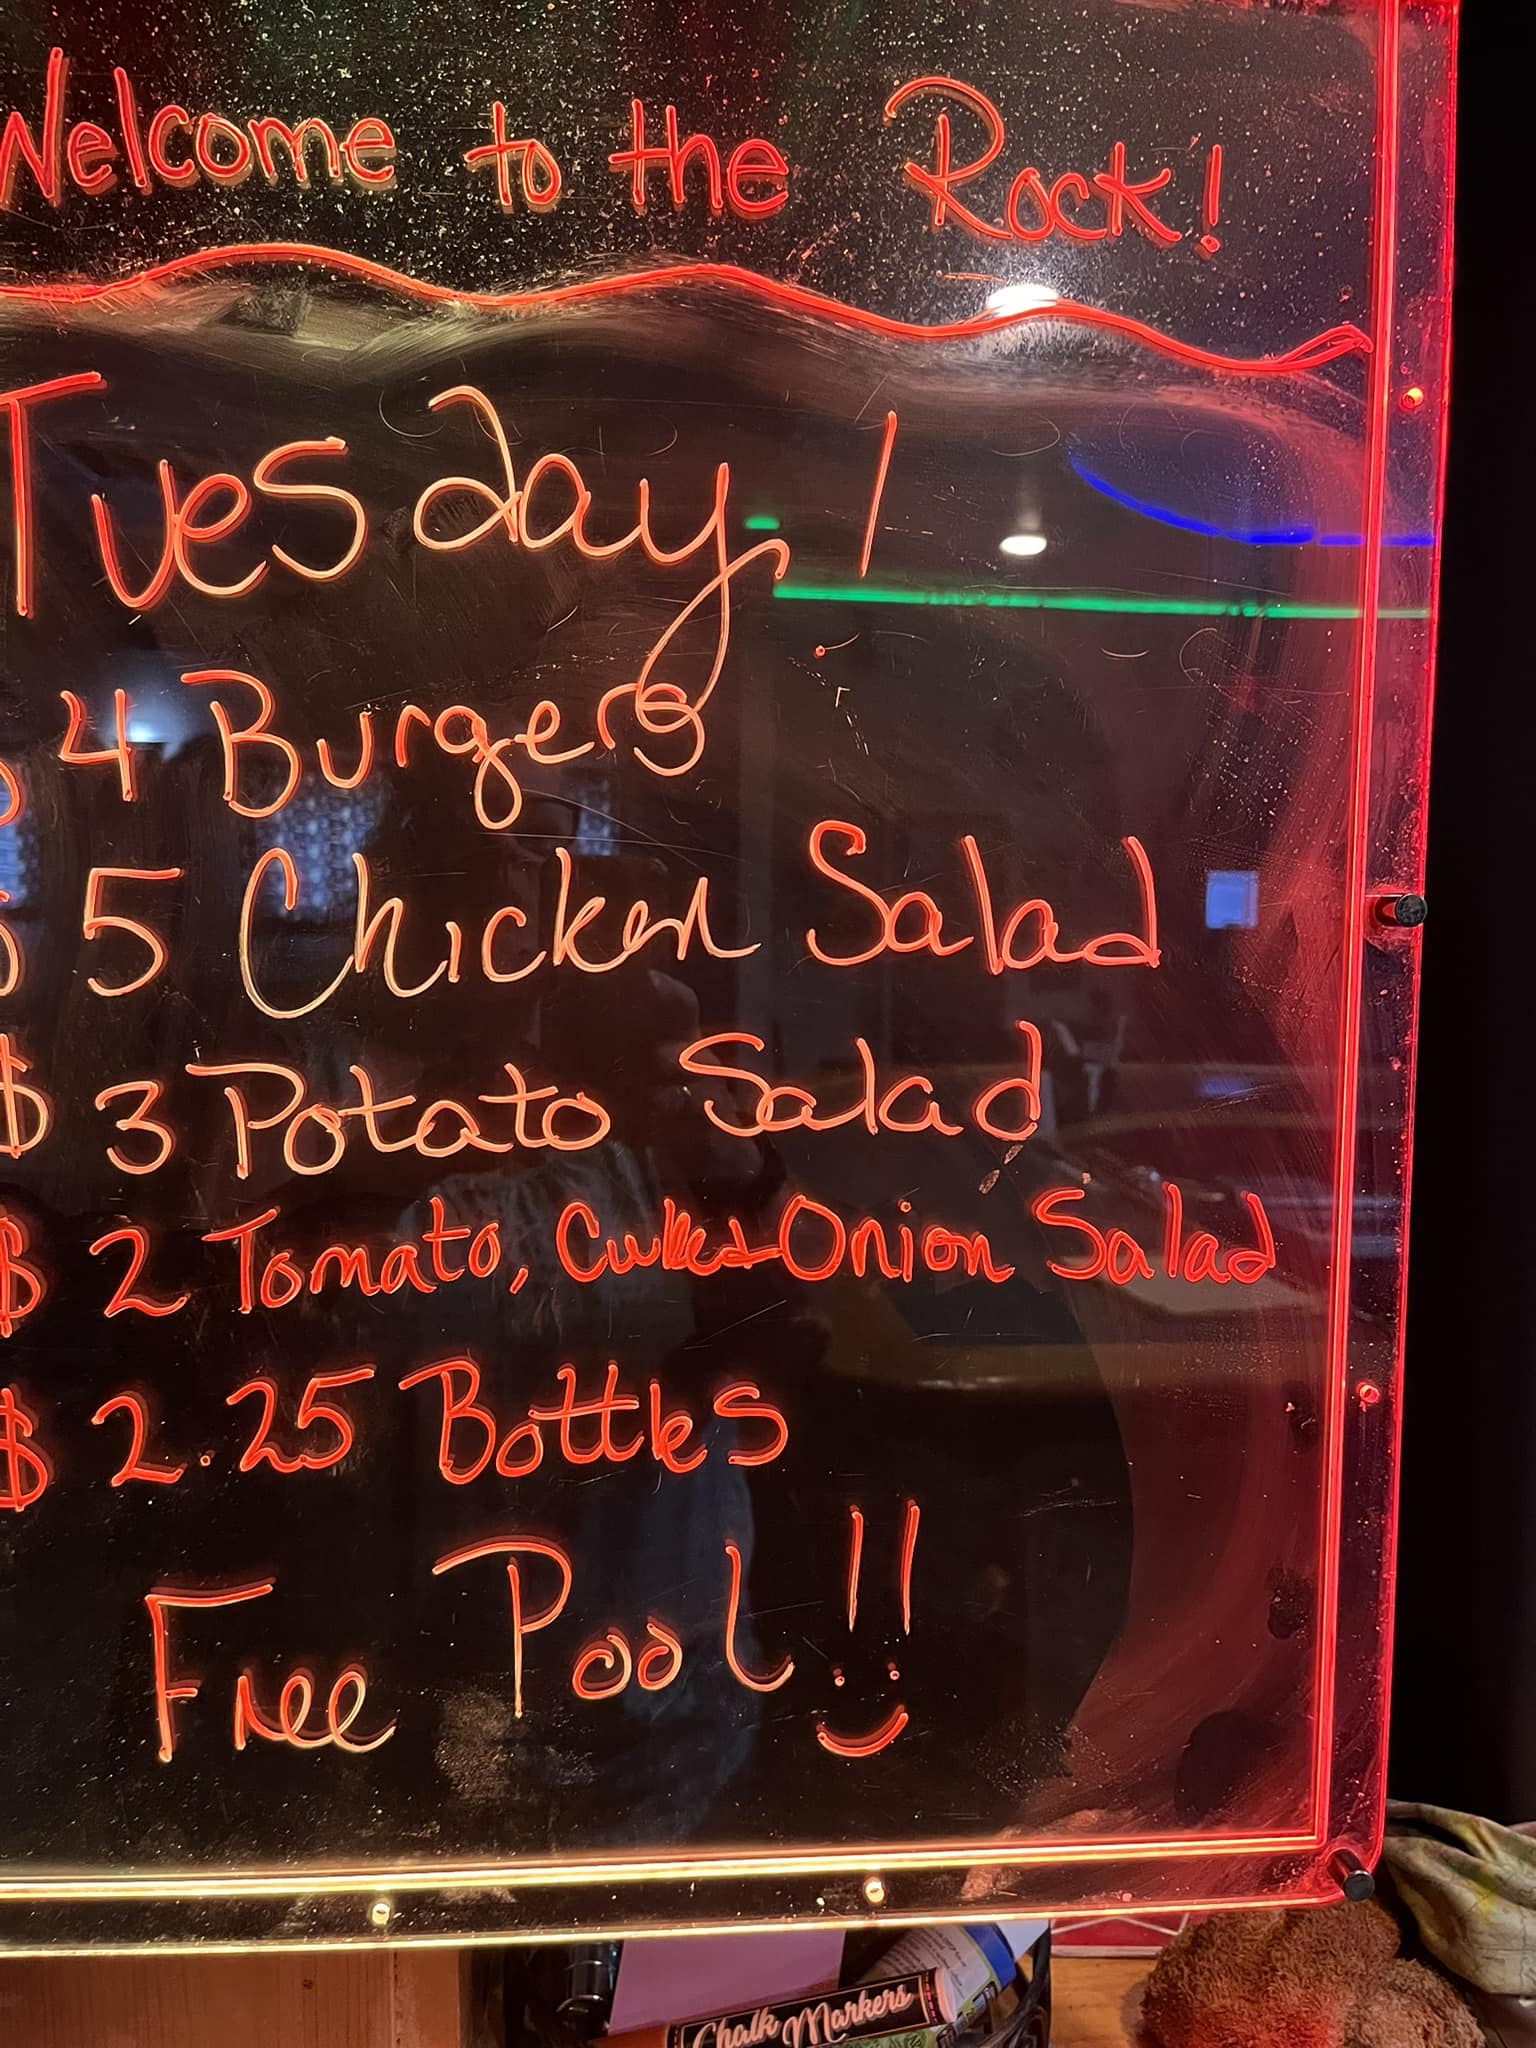 Welcome to the Rock!
Tuesday!
$ 4 Burgers
$ 5 Chicken Salad
$ 3 Potato Salad
$ 2 Tomato, Onion Salad
$ 2.25 Bottles
Free Pool!!
Chalk Markers